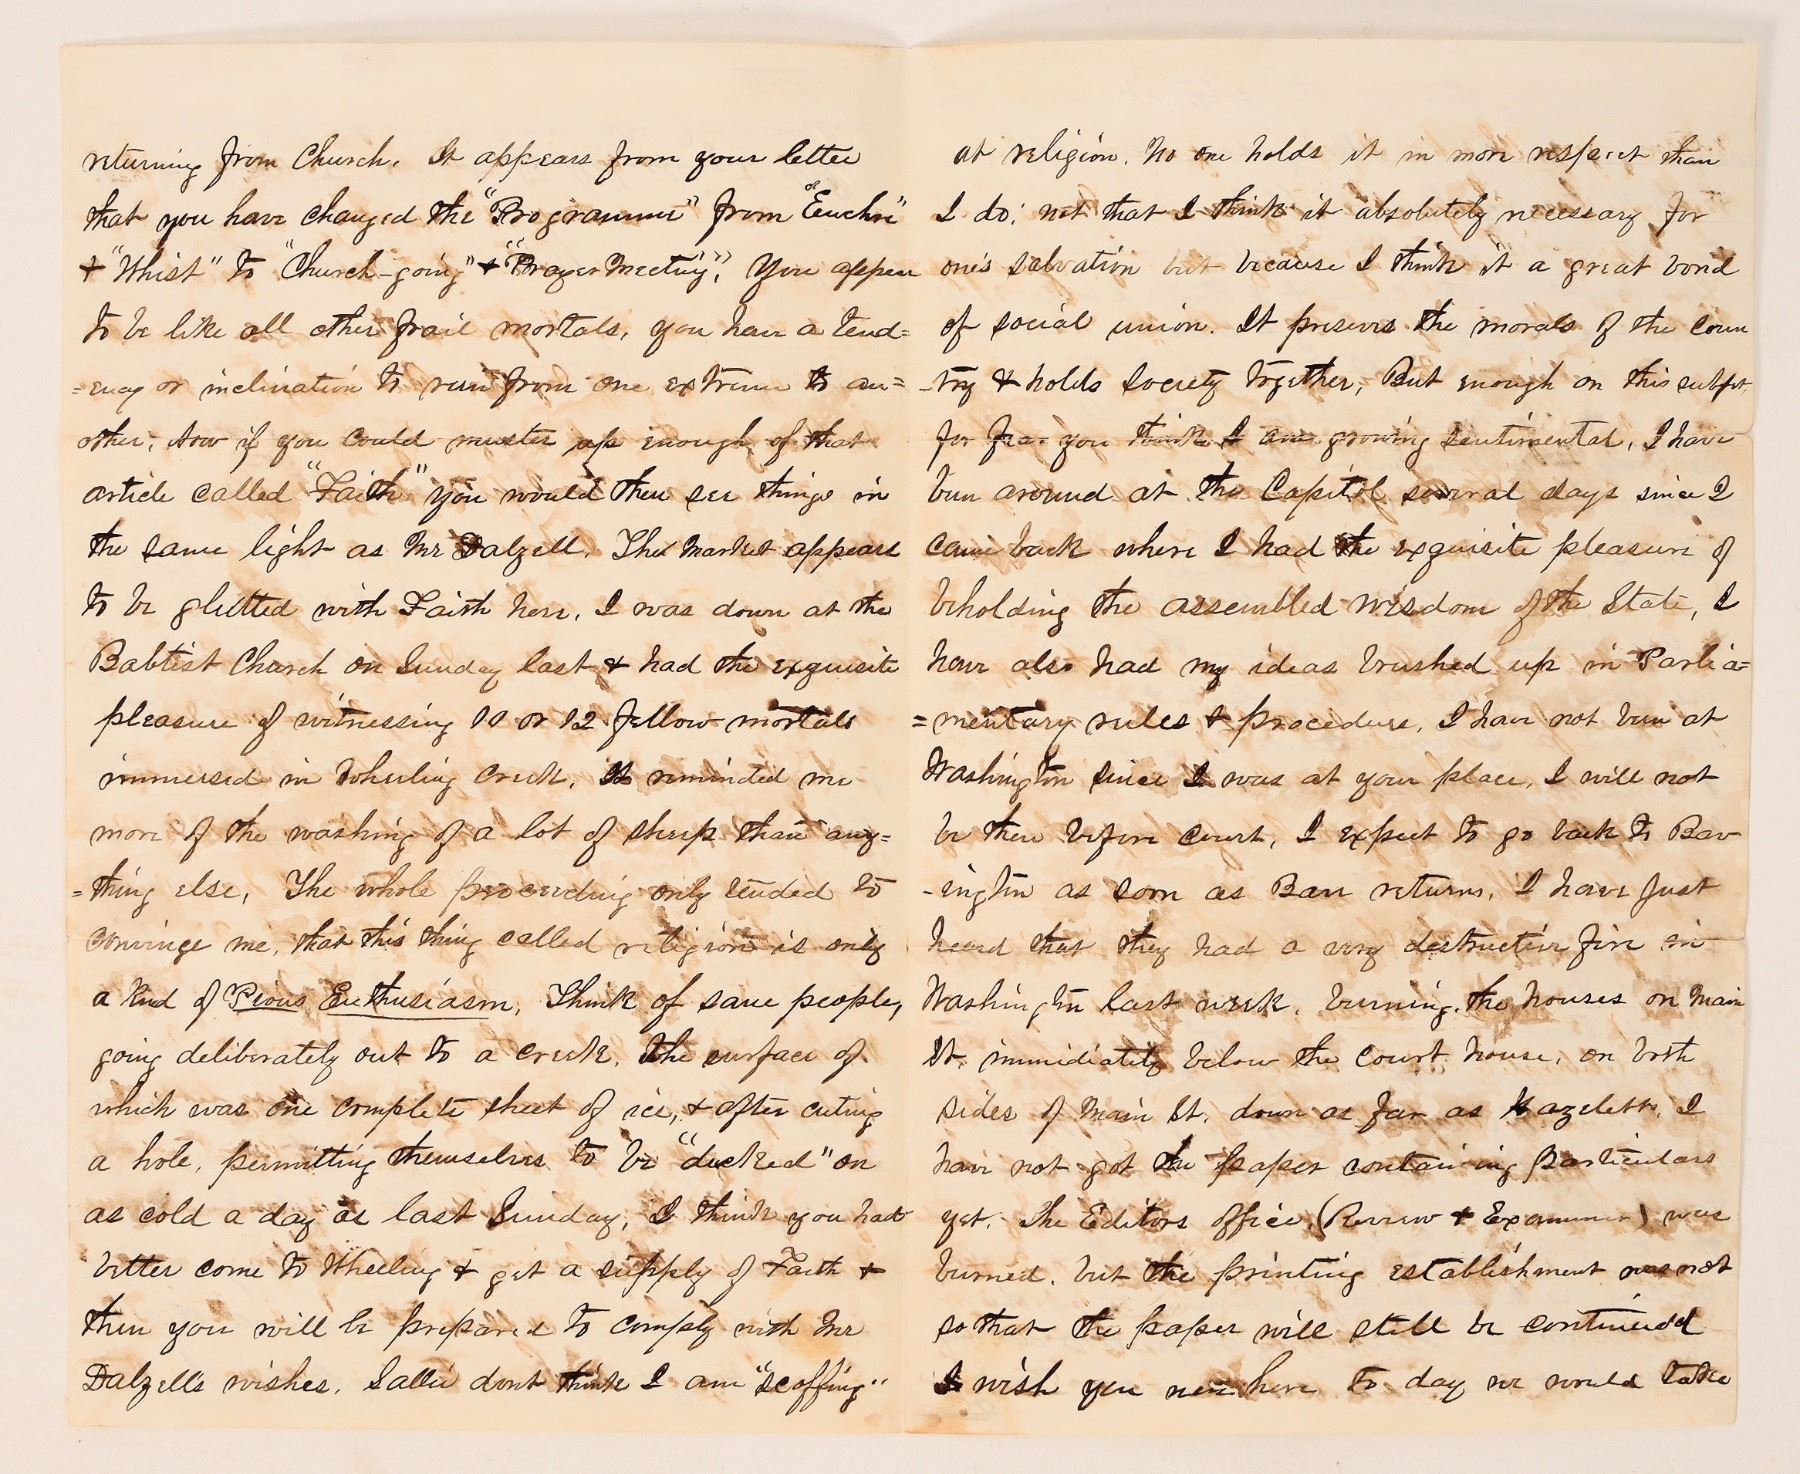 returning from Church. It appears from your letter
that you have changed the "Programme" from "Euchre"
+ "Whist" to "Church-going" + "Prayer Meeting". You appear
to be like all other frail mortals, you have a tend=
=ency or inclination to run from one extreme to an=
other. Now if you could muster up enough of that
article called "Faith" you would then see things in
the same light as Mr Dalzell. The Market appears
to be glutted with Faith here. I was down at the
Babtist Church on Sunday last + had the exquisite
pleasure of witnessing 10 or 12 fellow-mortals
immersed in Wheeling Creek. It reminded me
more of the washing of a lot of sheep than any=
=thing else. The whole proceeding only tended to
convince me, that this thing called religion is only
a kind of Pious Enthusiasm. Think of sane people,
going deliberately out to a creek, the surface of
which was one complete sheet of ice, + after cuting
a hole, permitting themselves to be "ducked" on
as cold a day as last Sunday. I think you had
better come to Wheeling + get a supply of Faith +
then you will be prepared to comply with Mr
Dalzell's wishes. Sallie dont think I am "scoffing"
at religion. No one holds it in more respect than
I do; not that I think it absolutely necessary for
one's salvation but because I think it a great bond
of social union. It preserves the morals of the coun
-try + holds society together. But enough on this subjet,
for fear you think I am growing sentimental. I have
been around at the Capitol several days since I
came back where I had the exquisite pleasure of
beholding the assembled wisdom of the State, I
have also had my ideas brushed up in Parlia=
=mentary rules + procedure. I have not been at
Washington since I was at your place. I will not
be there before court. I expect to go back to Bav
-ington as soon as Barr returns. I have just
heard that they had a very destructive fire in
Washington last week. burning the houses on Main
St. immidiately below the court house, on both
sides of Main St. down as far as Hazeletts. I
have not got the paper containing Particulars
yet. The Editors office (Review + Examiner) was
burned. but the printing establishment was not
so that the paper will still be continued
I wish you were here to day we would take